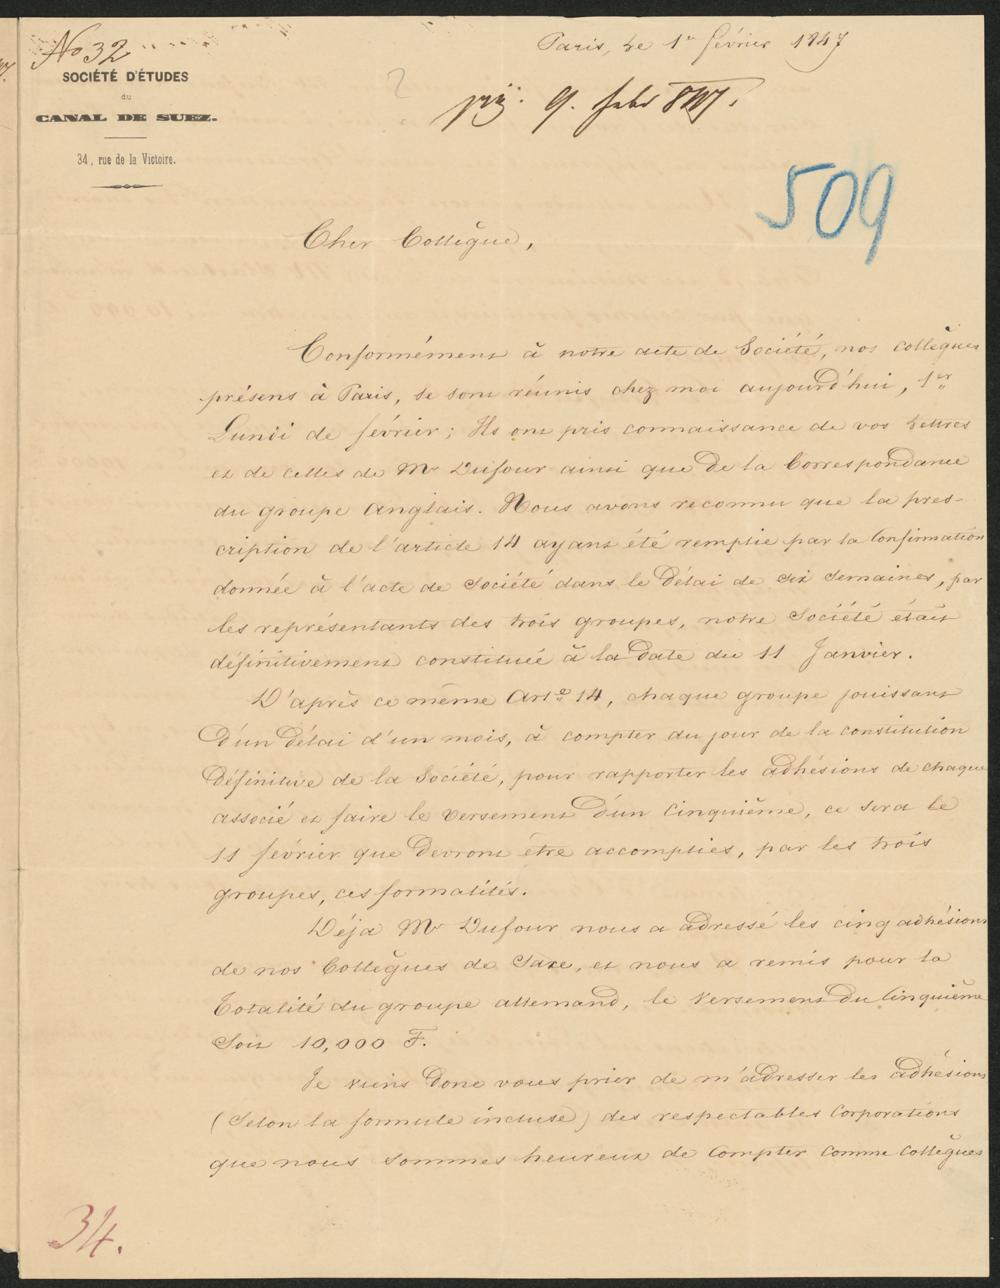 No 32
SOCIÉTÉ D'ÉTUDES
du
CANAL DE SUEZ.
34, rue de la Victoire.
Paris, le 1er février 1847
9. febr 847.
509
Cher Collègue,
Conformément à notre acte de Société, nos collègues
présens à Paris, se sont réunis chez moi aujourd'hui, 1er
Lundi de février; Ils ont pris connaissance de vos lettres
et de celles de Mr Dufour ainsi que de la Correspondance
du groupe anglais. Nous avons reconnu que la pres-
cription de l'article 14 ayant été remplie par la Confirmation
donnée à l'acte de Société dans le délai de six semaines, par
les représentants des trois groupes, notre Société était
définitivement constituée à la date du 11 Janvier.
D'après ce même Artle 14, chaque groupe jouissant
d'un délai d'un mois, à compter du jour de la constitution
définitive de la Société, pour rapporter les adhésions de chaque
associé et faire le versement d'un cinquième, ce sera le
11 février que devront être accomplies, par les trois
groupes, ces formalités.
Déja Mr Dufour nous a adressé les cinq adhésions
de nos Collègues de Saxe, et nous a remis pour la
totalité du groupe allemand, le versement du Cinquième
Soit 10,000 F.
Je viens donc vous prier de m'adresser les adhésions
(Selon la formule incluse) des respectables Corporations
que nous sommes heureux de Compter Comme Collègues
34.